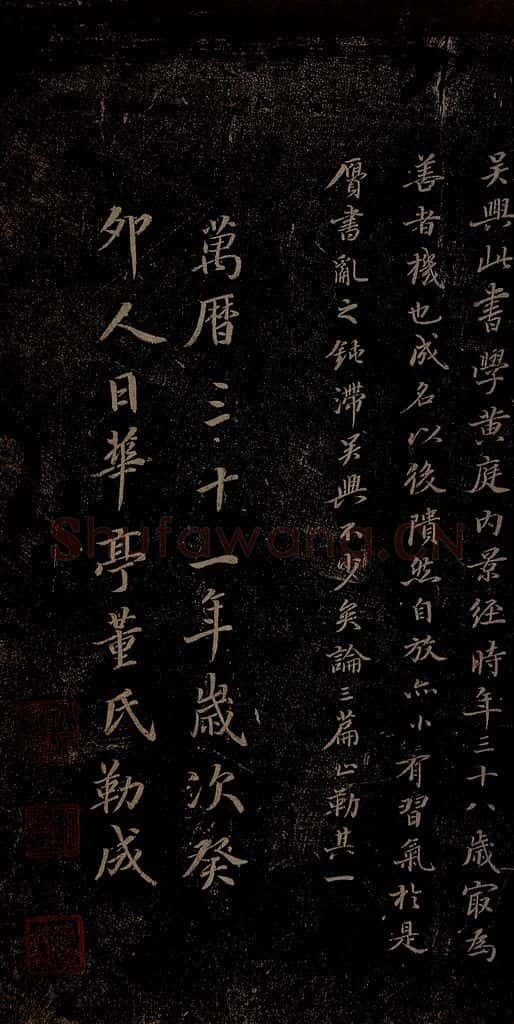 吴興此書學黄庭内景经時年三十八歳㝡為
善者機也成名以後隤然自放亦小有習氣於是
贗書亂之鈍滯吴興不少矣論三篇止勒其一
萬曆三十一年歲次癸
卯人日華亭董氏勒成
Shufawang.CN